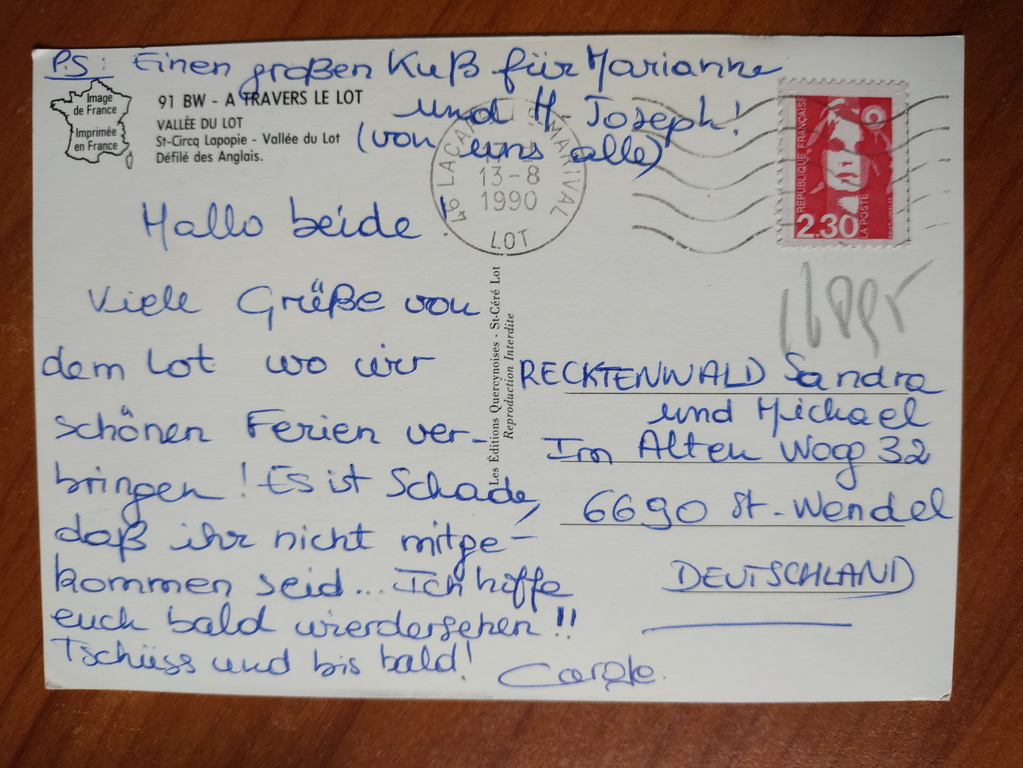 P.S: Einen großen Kuß für Marianne
und H. Joseph!
(von uns alle)
Image
de France
Imprimée
en France
91 BW - A TRAVERS LE LOT
VALLÉE DU LOT
St-Circq Lapopie - Vallée du Lot
Défilé des Anglais.
46 LACAPELLE-MARIVAL
13-8
1990
LOT
RÉPUBLIQUE FRANÇAISE
2.30
LA POSTE
Hallo beide!
Viele Grüße von
dem Lot wo wir
schönen Ferien ver-
bringen! Es ist Schade,
daß ihr nicht mitge-
kommen seid... Ich hiffe
euch bald wierdersehen!!
Tschüss und bis bald!
Carole.
Les Éditions Quercynoises - St-Céré Lot
Reproduction Interdite
RECKTENWALD Sandra
und Michael
Im Alten Wog 32
6690 St-Wendel
DEUTSCHLAND